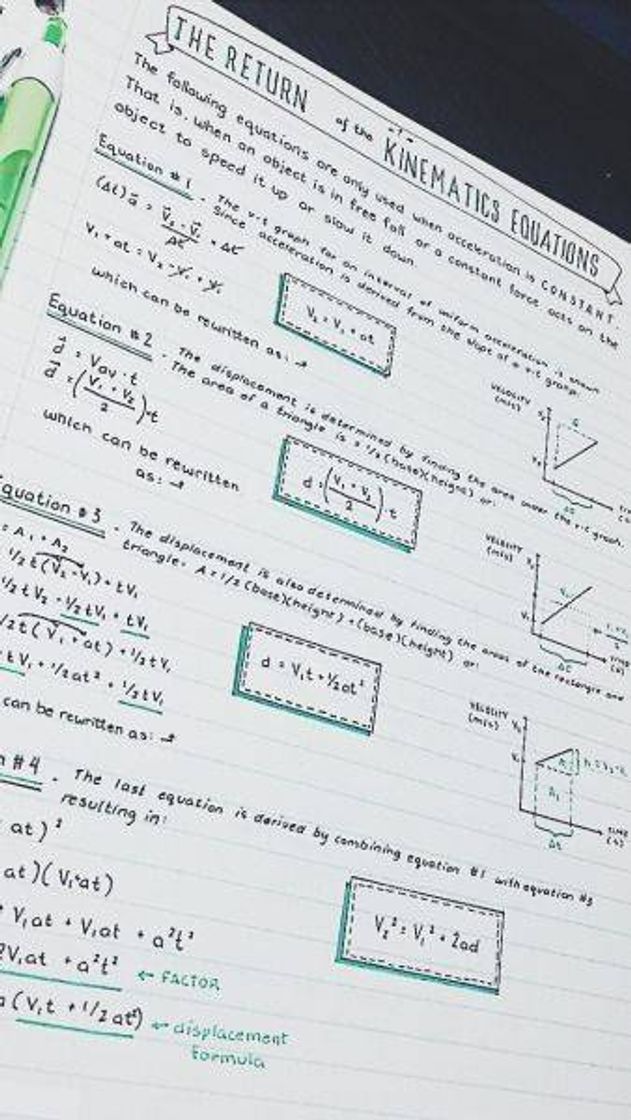 THE RETURN of the KINEMATICS EQUATIONS
The following equations are only used when acceleration is CONSTANT.
That is, when an object is in free fall or a constant force acts on the
object to speed it up or slow it down.
Equation #1 - The v-t graph for an interval of uniform acceleration is shown
Since acceleration is derived from the slope of a v-t graph:
(Δt)a⃗ = V⃗₂ - V⃗₁ / Δt • Δt
V₁ + at = V₂ - V₁ + V₁
which can be rewritten as: →
V₂ = V₁ + at
VELOCITY
(m/s)
Δt
Equation #2 - The displacement is determined by finding the area under the v-t graph.
- The area of a triangle is = 1/2 (base)(height) or:
d⃗ = Vav • t
d⃗ = (V₁ + V₂ / 2) • t
which can be rewritten
as: →
d = (V₁ + V₂ / 2) • t
VELOCITY
(m/s)
Δt
TIME
(s)
Equation #3 - The displacement is also determined by finding the areas of the rectangle and
triangle. A = 1/2 (base)(height) + (base)(height) or:
= A₁ + A₂
1/2 t (V₂ - V₁) + tV₁
1/2 t V₂ - 1/2 tV₁ + tV₁
1/2 t (V₁ + at) + 1/2 tV₁
tV₁ + 1/2 at² + 1/2 tV₁
can be rewritten as: →
d = V₁t + 1/2 at²
VELOCITY
(m/s)
V₂
V₁
A₁
Δt
TIME
(s)
#4 - The last equation is derived by combining equation #1 with equation #3
resulting in:
at)²
at)(V₁+at)
V₁at + V₁at + a²t²
2V₁at + a²t² ← FACTOR
a (V₁t + 1/2 at²) ← displacement
formula
V₂² = V₁² + 2ad